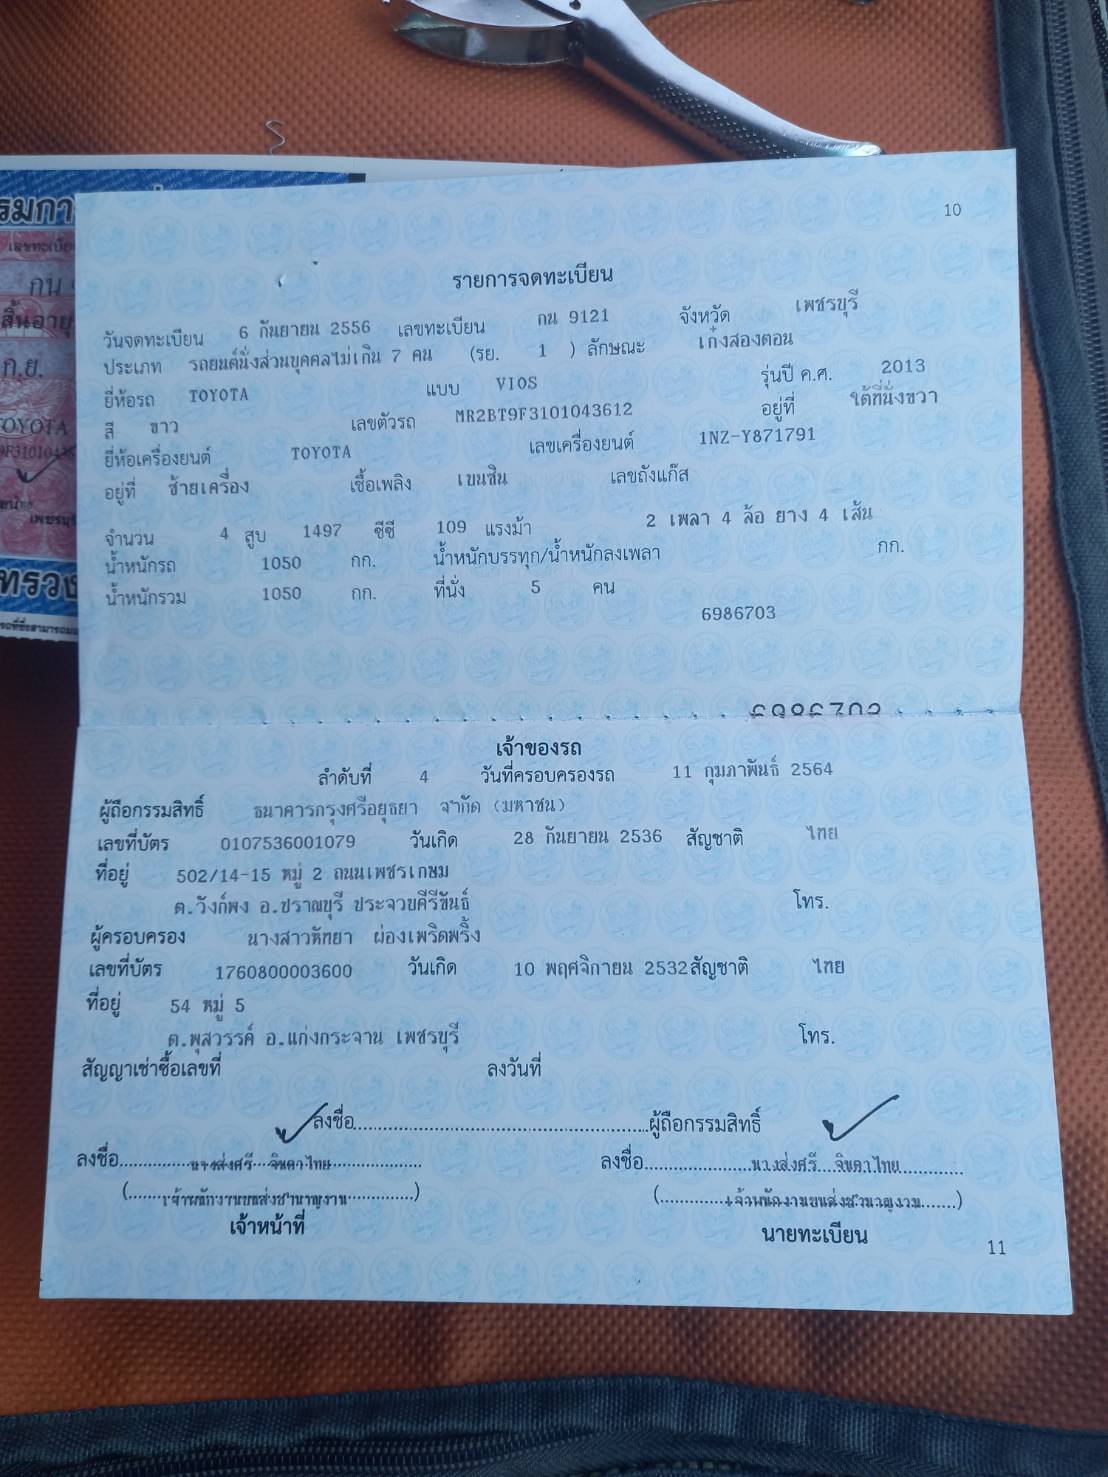 10
รายการจดทะเบียน
วันจดทะเบียน 6 กันยายน 2556 เลขทะเบียน กน 9121 จังหวัด เพชรบุรี
ประเภท รถยนต์นั่งส่วนบุคคลไม่เกิน 7 คน (รย. 1 ) ลักษณะ เก๋งสองตอน
ยี่ห้อรถ TOYOTA แบบ VIOS รุ่นปี ค.ศ. 2013
สี ขาว เลขตัวรถ MR2BT9F3101043612 อยู่ที่ ใต้ที่นั่งขวา
ยี่ห้อเครื่องยนต์ TOYOTA เลขเครื่องยนต์ 1NZ-Y871791
อยู่ที่ ซ้ายเครื่อง เชื้อเพลิง เบนซิน เลขถังแก๊ส
จำนวน 4 สูบ 1497 ซีซี 109 แรงม้า 2 เพลา 4 ล้อ ยาง 4 เส้น
น้ำหนักรถ 1050 กก. น้ำหนักบรรทุก/น้ำหนักลงเพลา กก.
น้ำหนักรวม 1050 กก. ที่นั่ง 5 คน
6986703
6986703
เจ้าของรถ
ลำดับที่ 4 วันที่ครอบครองรถ 11 กุมภาพันธ์ 2564
ผู้ถือกรรมสิทธิ์ ธนาคารกรุงศรีอยุธยา จำกัด (มหาชน)
เลขที่บัตร 0107536001079 วันเกิด 28 กันยายน 2536 สัญชาติ ไทย
ที่อยู่ 502/14-15 หมู่ 2 ถนนเพชรเกษม
ต.วังก์พง อ.ปราณบุรี ประจวบคีรีขันธ์ โทร.
ผู้ครอบครอง นางสาวหัทยา ผ่องเพริดพริ้ง
เลขที่บัตร 1760800003600 วันเกิด 10 พฤศจิกายน 2532 สัญชาติ ไทย
ที่อยู่ 54 หมู่ 5
ต.พุสวรรค์ อ.แก่งกระจาน เพชรบุรี โทร.
สัญญาเช่าซื้อเลขที่ ลงวันที่
ลงชื่อ ผู้ถือกรรมสิทธิ์
ลงชื่อ นางส่งศรี จินดาไทย ลงชื่อ นางส่งศรี จินดาไทย
(เจ้าพนักงานขนส่งชำนาญงาน) (เจ้าพนักงานขนส่งชำนาญงาน)
เจ้าหน้าที่ นายทะเบียน
11
รมกา
เลขทะเบีย
กน
สิ้นอายุ
ก.ย.
TOYOTA
เพชรบุ
ทรวง